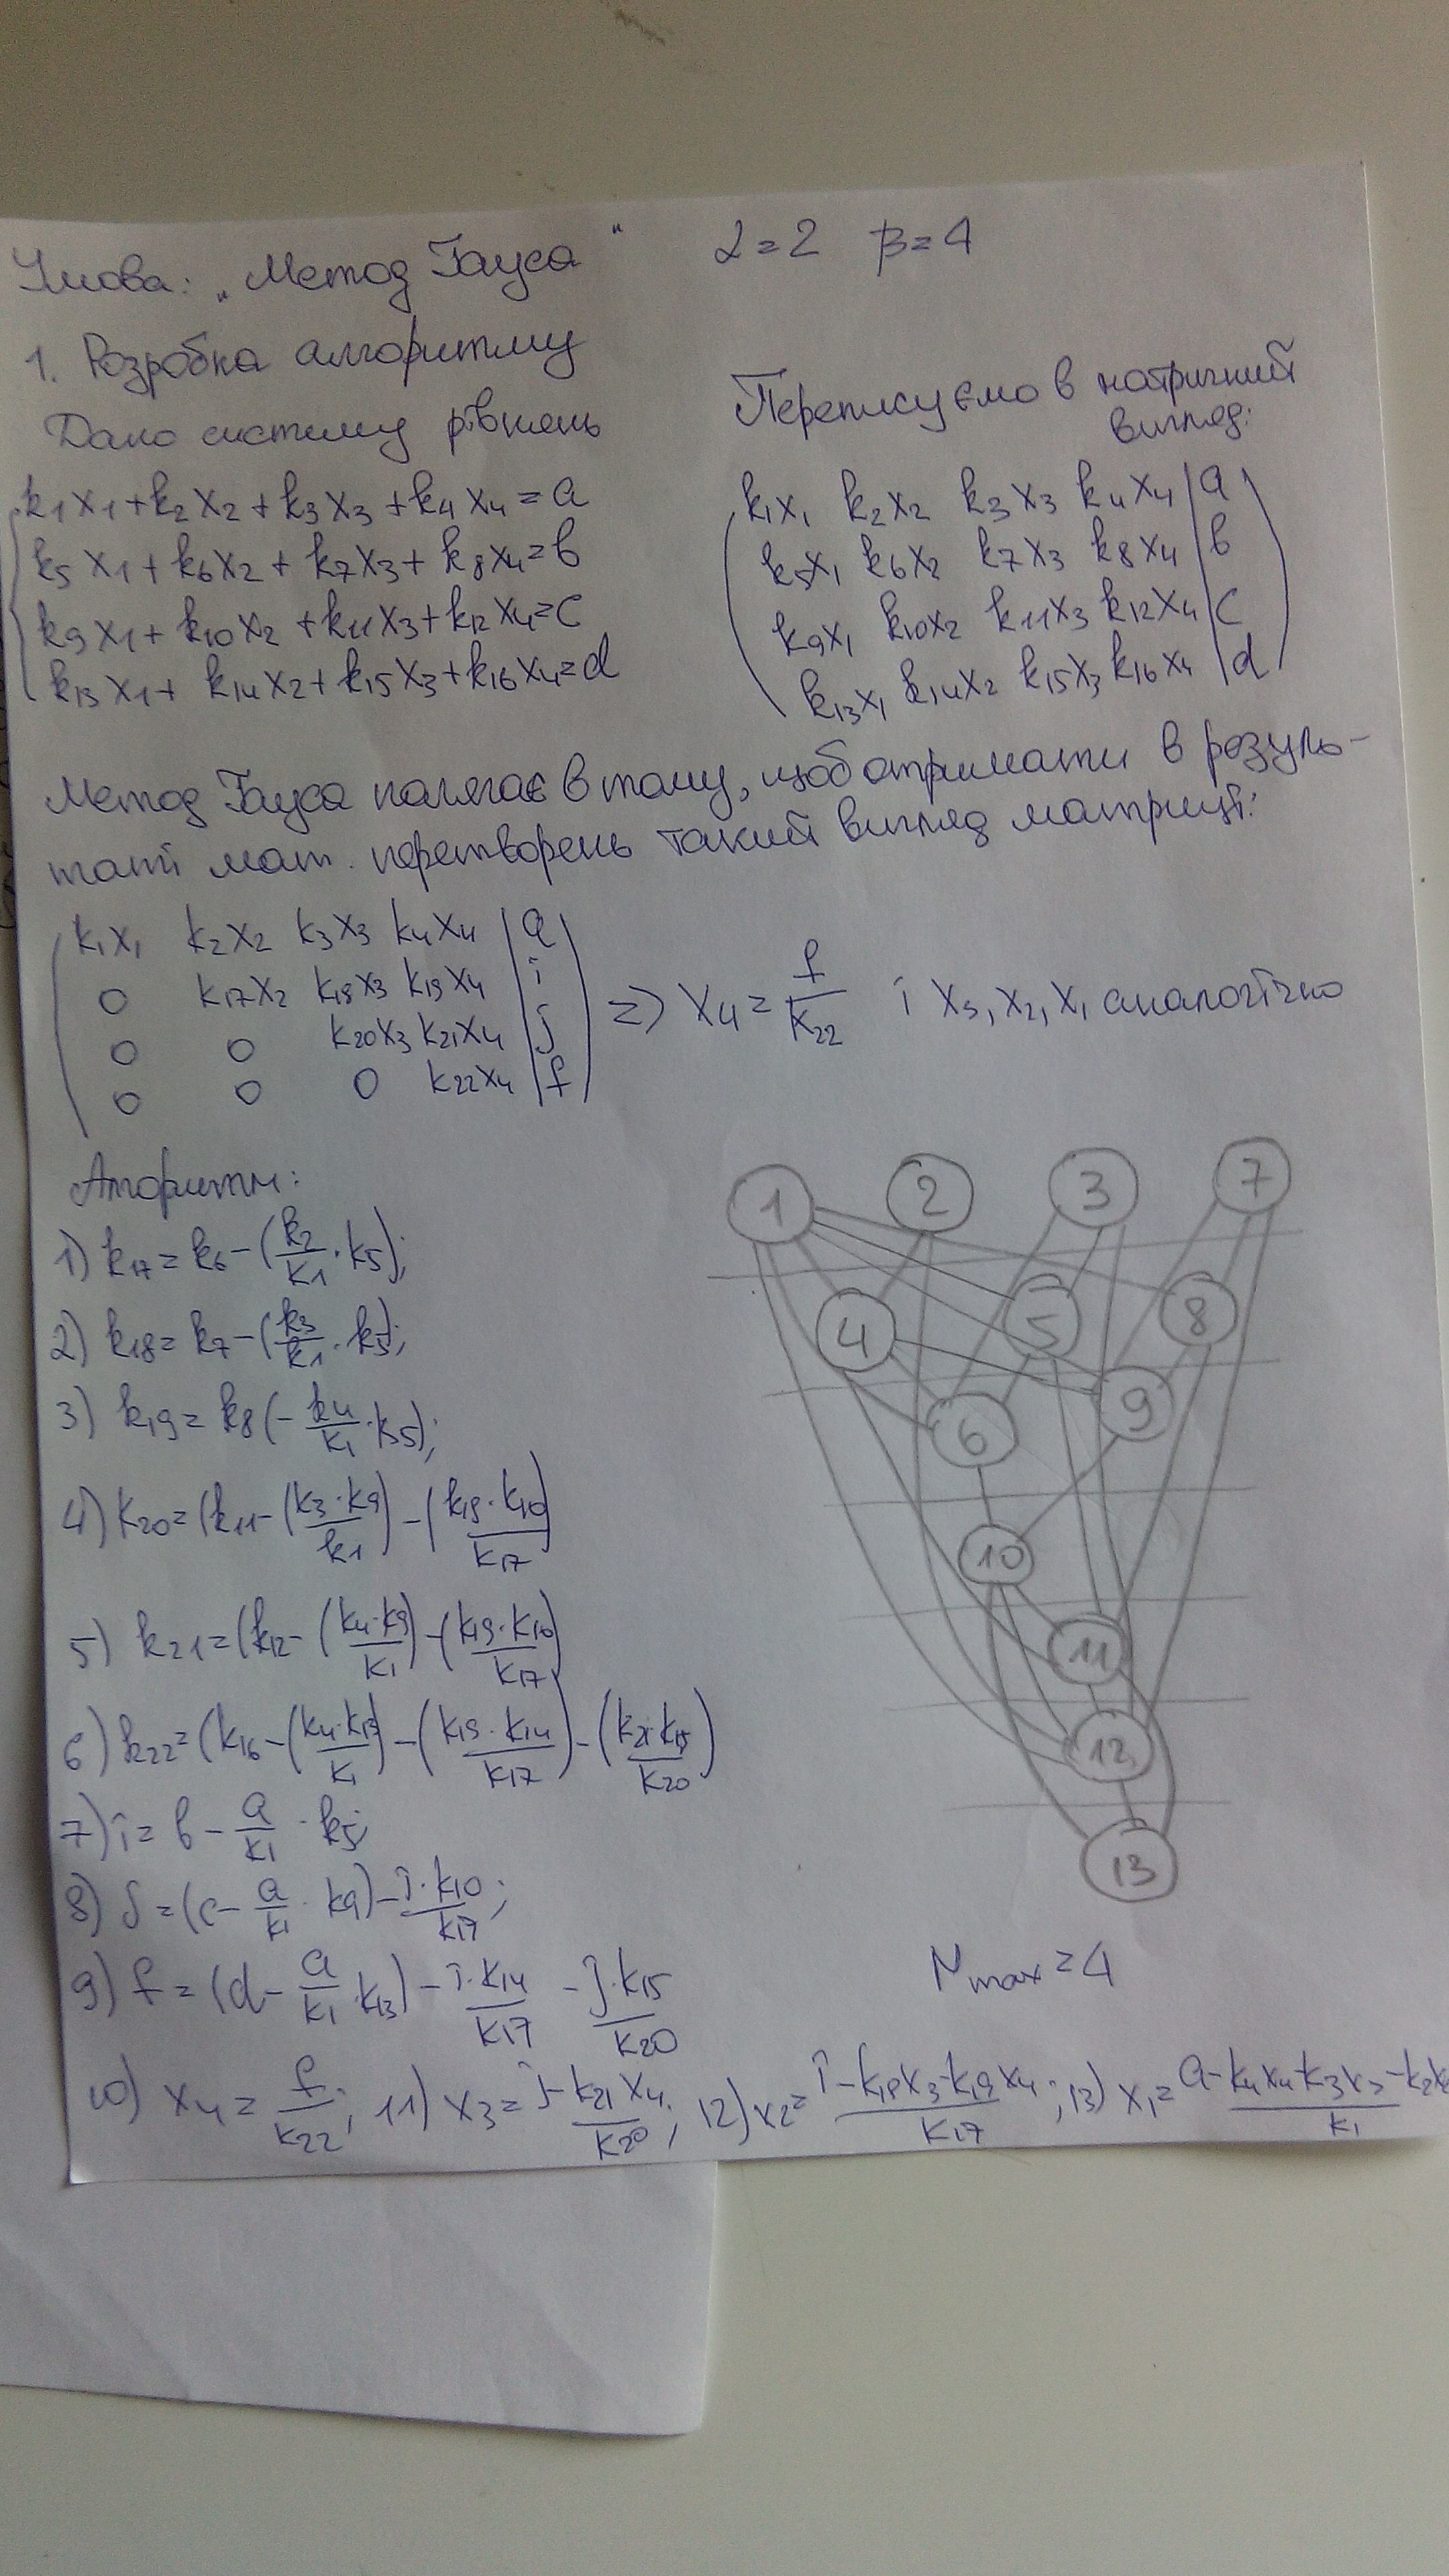 Умова: „Метод Гауса" α=2 β=4
1. Розробка алгоритму
Дано систему рівнень
Переписуємо в матричний
вигляд:
k1x1+k2x2+k3x3+k4x4=a
k5x1+k6x2+k7x3+k8x4=b
k9x1+k10x2+k11x3+k12x4=c
k13x1+k14x2+k15x3+k16x4=d
k1x1 k2x2 k3x3 k4x4 | a
k5x1 k6x2 k7x3 k8x4 | b
k9x1 k10x2 k11x3 k12x4 | c
k13x1 k14x2 k15x3 k16x4 | d
Метод Гауса полягає в тому, щоб отримати в резуль-
таті мат. перетворень такий вигляд матриці:
k1x1 k2x2 k3x3 k4x4 | a
0 k17x2 k18x3 k19x4 | i
0 0 k20x3 k21x4 | j
0 0 0 k22x4 | f
=> x4 = f/k22 і x3, x2, x1 аналогічно
Алгоритм:
1) k17=k6-(k2/k1·k5);
2) k18=k7-(k3/k1·k5);
3) k19=k8(-k4/k1·k5);
4) k20=(k11-(k3·k9/k1)-(k18·k10/k17)
5) k21=(k12-(k4·k9/k1)-(k19·k10/k17)
6) k22=(k16-(k4·k13/k1)-(k19·k14/k17)-(k21·k15/k20)
7) i=b-a/k1·k5;
8) j=(c-a/k1·k9)-i·k10/k17;
9) f=(d-a/k1·k13)-i·k14/k17-j·k15/k20
10) x4=f/k22; 11) x3=j-k21x4/k20; 12) x2=i-k18x3-k19x4/k17; 13) x1=a-k4x4-k3x3-k2x2/k1
1 2 3 7
4 5 8
6 9
10
11
12
13
Nmax=4